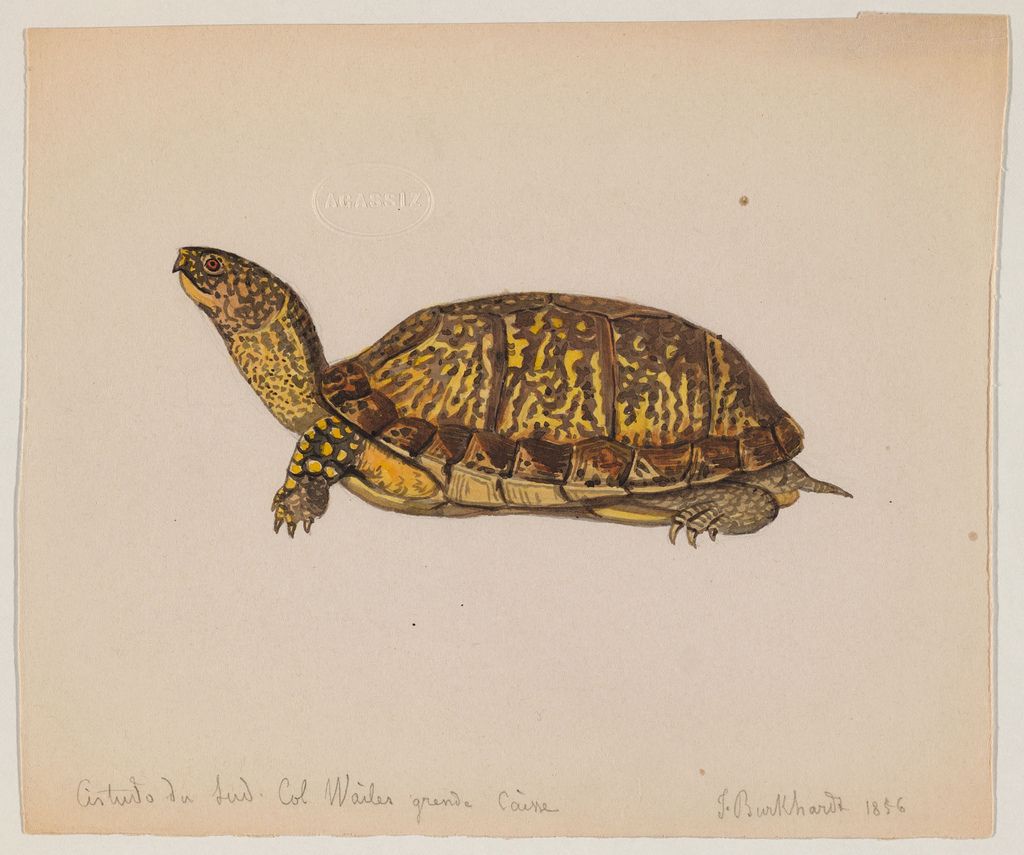 AGASSIZ
Cistudo du Sud. Col Wailes grende Caisse
J. Burkhardt 1856